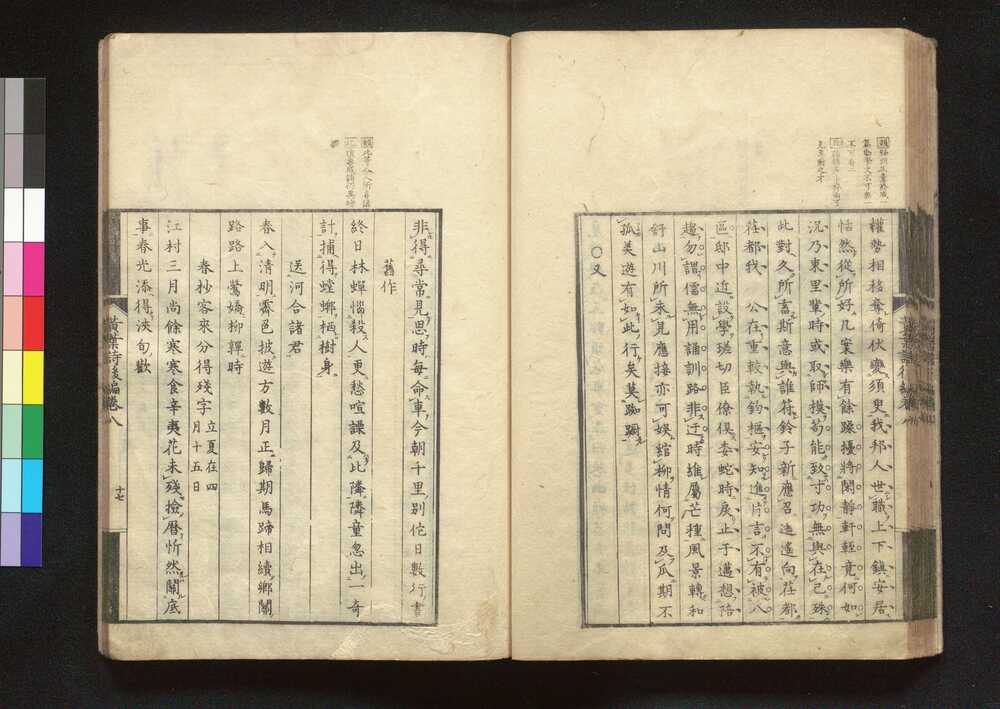 權勢相移奪倚伏變須臾我邦人世職上下鎮安居
恬然從所好几案樂有餘躁擾將閑靜軒輊竟何如
況乃東里輩時或取師摸苟能致寸功無與在己殊
此對久所畜斯意與誰苻鈴子新應召迢遙向荏都
荏都我　公在重較執鈞樞安知進片言不有被八
區邸中近設學班切臣僚俱委蛇時戾止于邁想陪
趨勿謂儒無用誦訓路非迂時維屬芒種風景轉和
舒山川所未見應接亦可娛綰柳情何問及瓜期不
孤美遊有如此行矣莫踟躕
○又
非得尋常見思時每命車今朝千里別佗日數行書
舊作
終日林蟬惱殺人更愁喧譟及比隣隣童忽出一奇
計捕得螳螂栖樹身
送河合諸君
春入清明霽色披遊方數月正歸期馬蹄相續鄉關
路路上鶯嬌柳嚲時
春抄客來分得殘字　立夏在四
月十五日
江村三月尚餘寒寒食辛夷花未殘撿曆忻然關底
事春光添得浹旬歡
黃葉詩後編卷八
十七